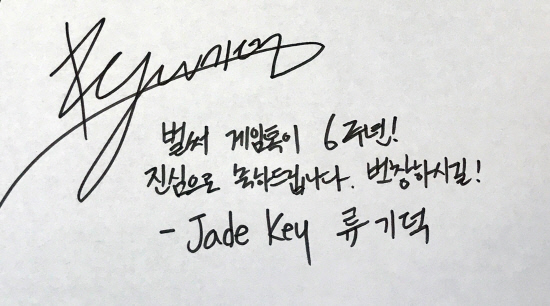 벌써 게임톡이 6주년!
진심으로 축하드립니다. 번창하시길!
- Jade Key 류기덕